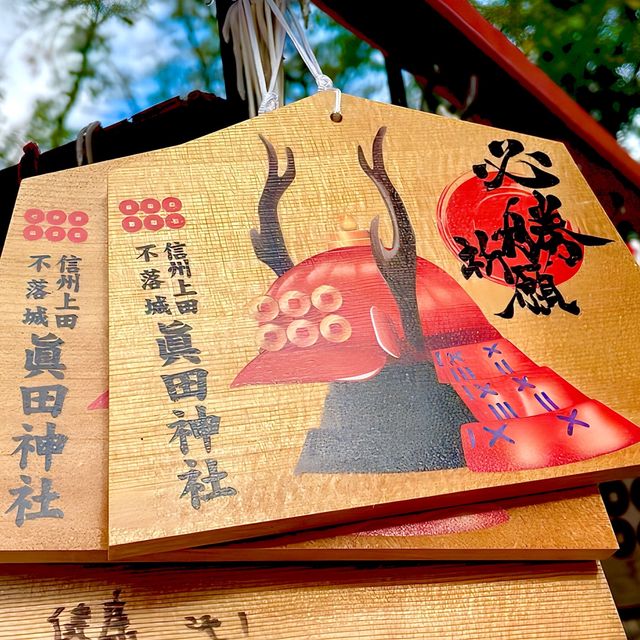 必勝
祈願
信州上田
不落城
眞田神社
信州上田
不落城
眞田神社
健康